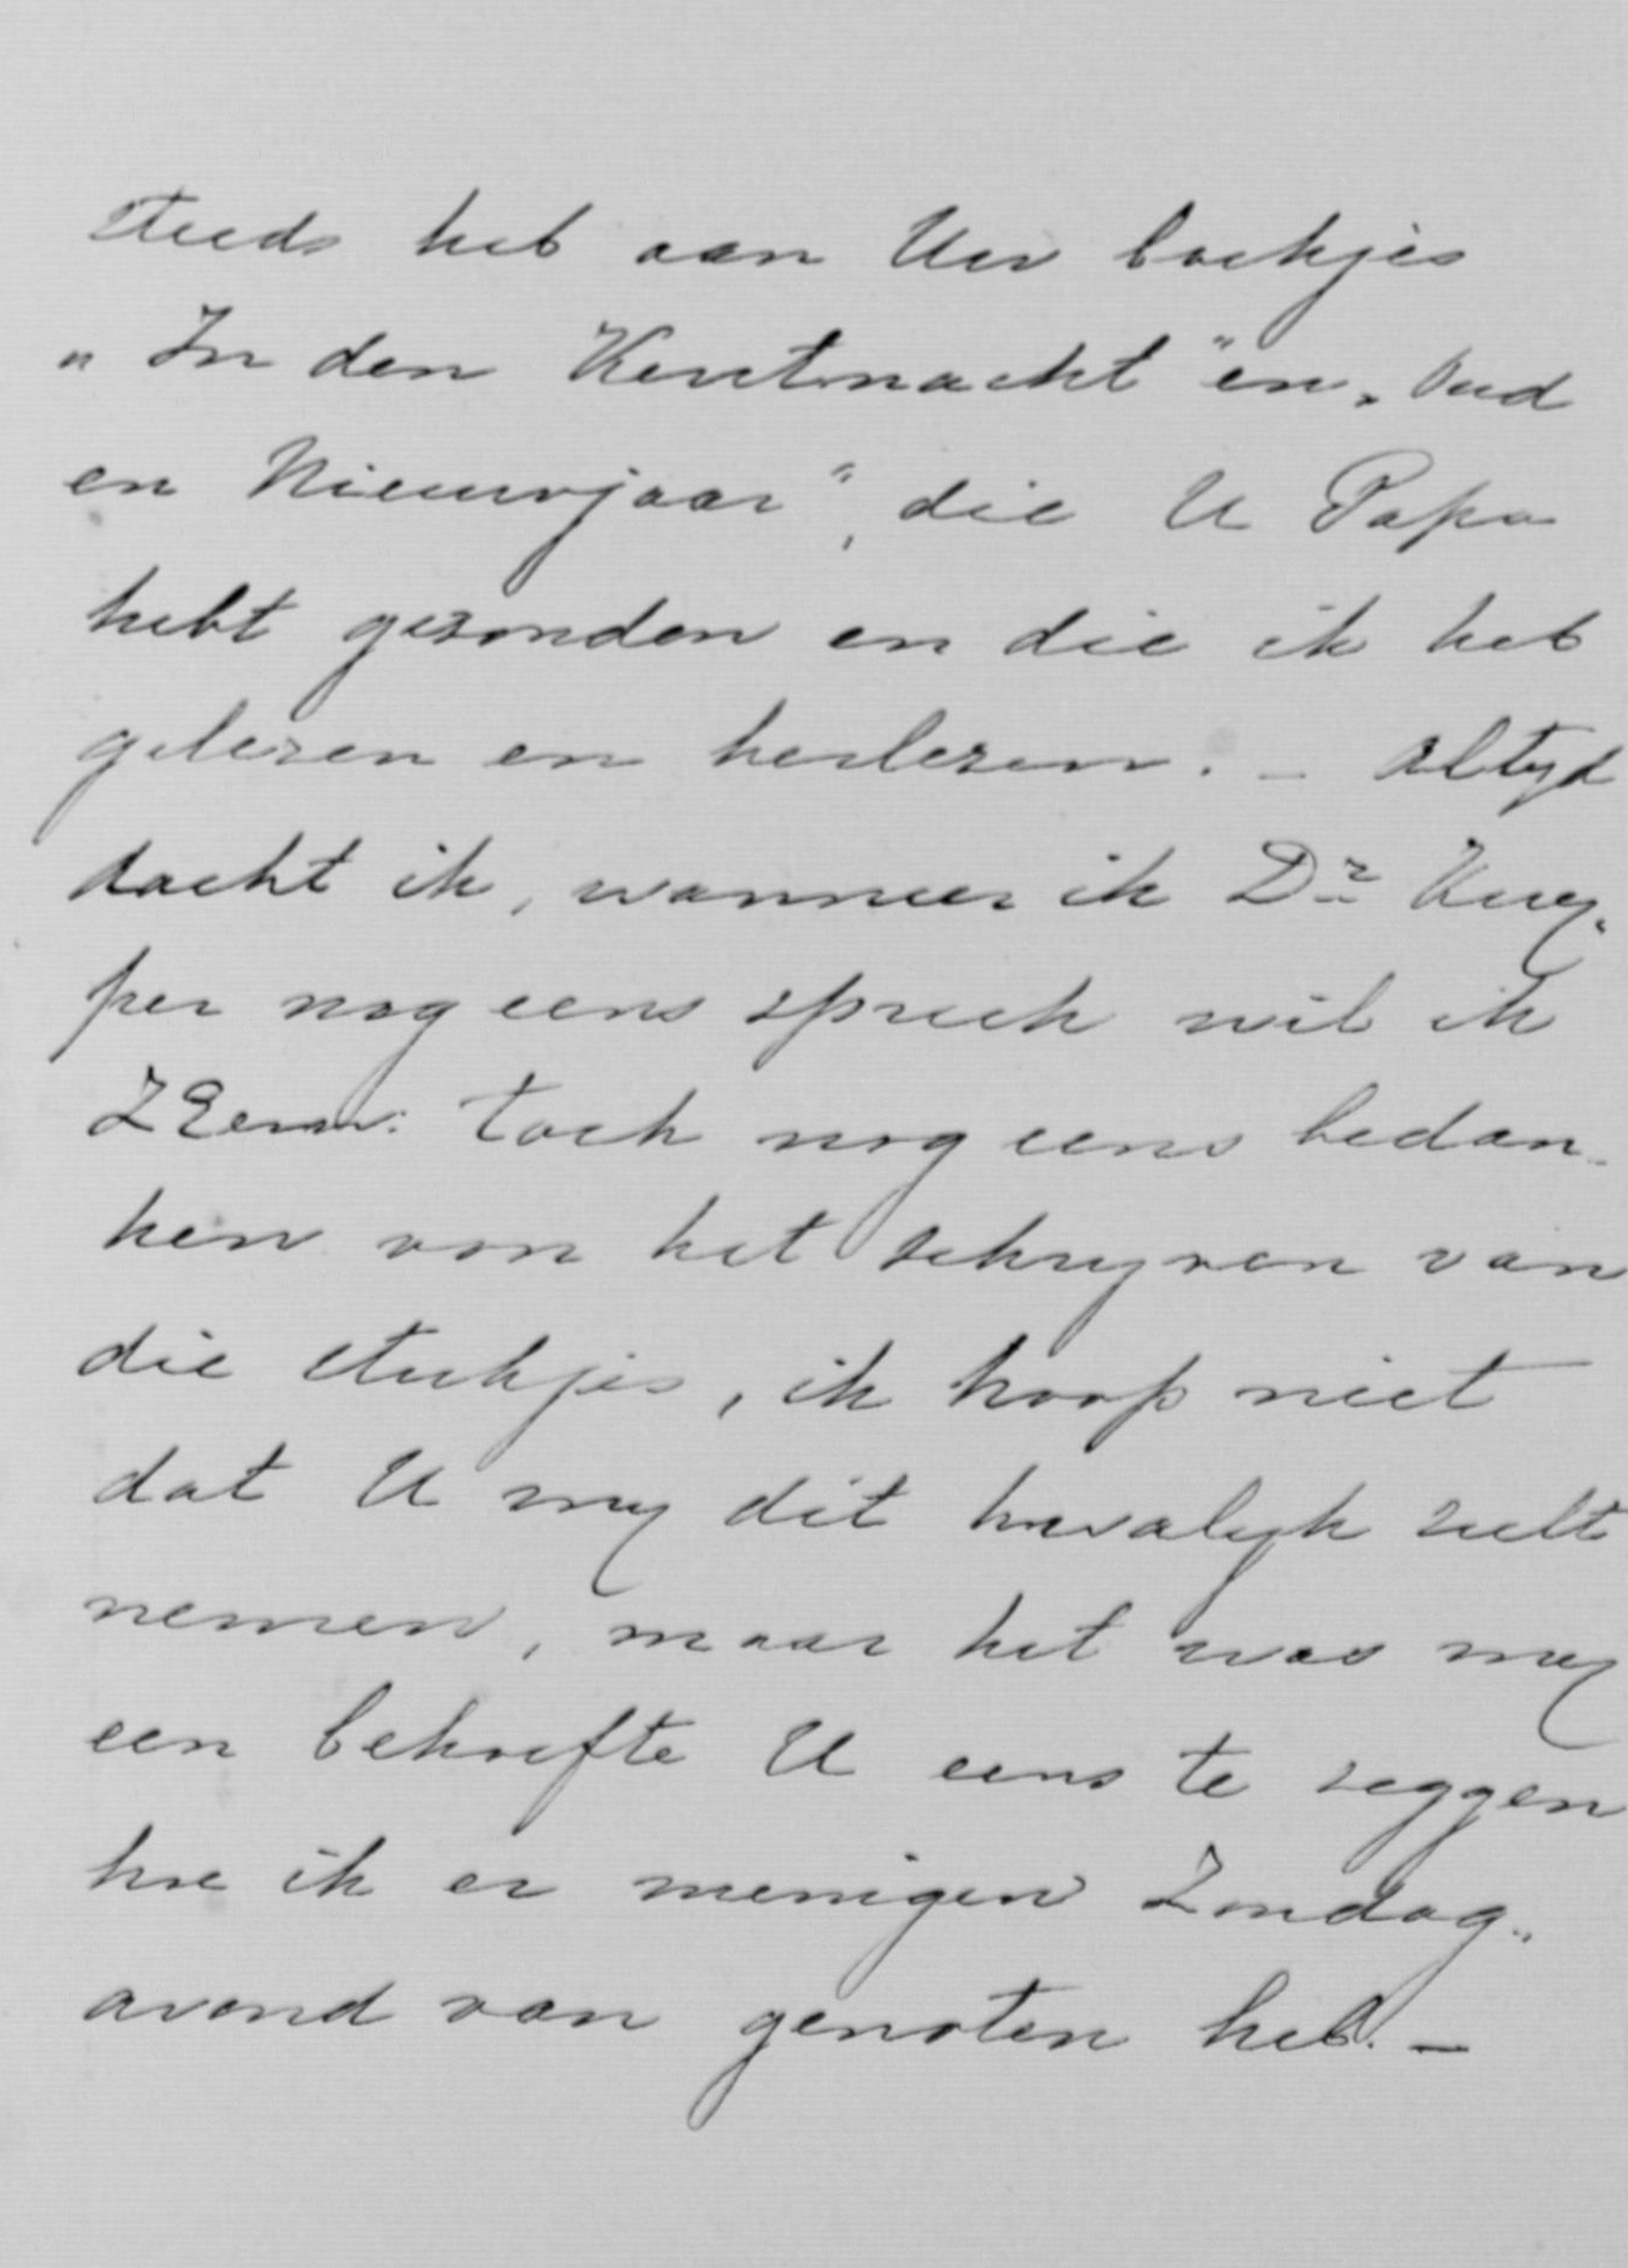 steeds heb aan Uw boekjes
„In den Kerstnacht" en „Oud
en Nieuwjaar", die U Papa
hebt gezonden en die ik heb
gelezen en herlezen. – Altyd
dacht ik, wanneer ik Dr Kuy-
per nog eens spreek wil ik
ZEerw: toch nog eens bedan-
ken voor het schryven van
die stukjes, ik hoop niet
dat U my dit kwalyk zult
nemen, maar het was my
een behoefte U eens te zeggen
hoe ik er menigen Zondag-
avond van genoten heb. –